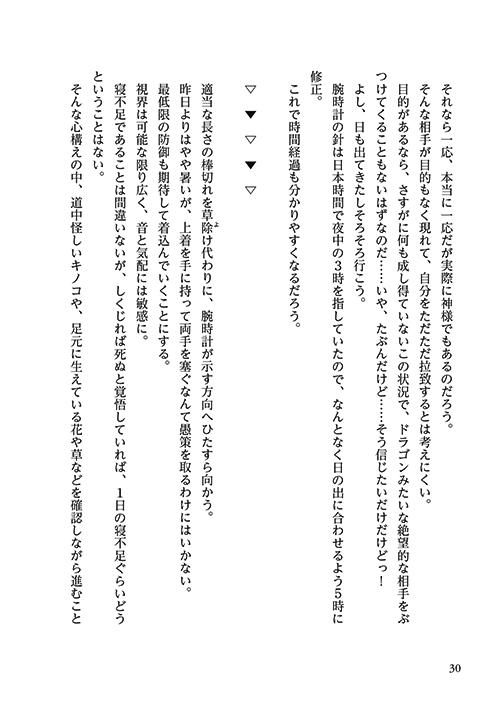 それなら一応、本当に一応だが実際に神様でもあるのだろう。
そんな相手が目的もなく現れて、自分をただただ拉致するとは考えにくい。
目的があるなら、さすがに何も成し得ていないこの状況で、ドラゴンみたいな絶望的な相手をぶ
つけてくることもないはずなのだ……いや、たぶんだけど……そう信じたいだけだけどっ！
よし、日も出てきたしそろそろ行こう。
腕時計の針は日本時間で夜中の３時を指していたので、なんとなく日の出に合わせるよう５時に
修正。
これで時間経過も分かりやすくなるだろう。
▽　▼　▽　▼　▽
適当な長さの棒切れを草除け代わりに、腕時計が示す方向へひたすら向かう。
よ
昨日よりはやや暑いが、上着を手に持って両手を塞ぐなんて愚策を取るわけにはいかない。
最低限の防御も期待して着込んでいくことにする。
視界は可能な限り広く、音と気配には敏感に。
寝不足であることは間違いないが、しくじれば死ぬと覚悟していれば、１日の寝不足ぐらいどう
ということはない。
そんな心構えの中、道中怪しいキノコや、足元に生えている花や草などを確認しながら進むこと
30